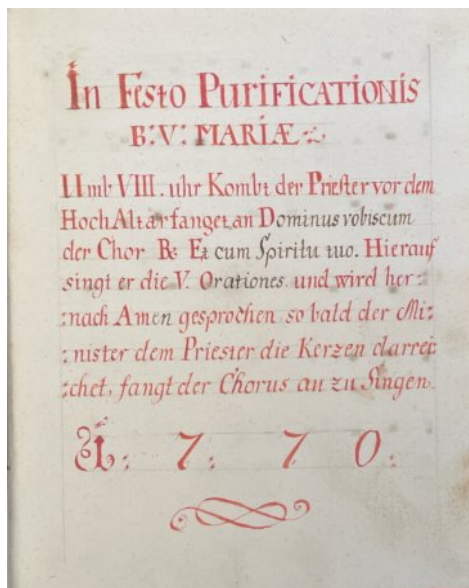 In Festo Purificationis
B: V: MARIÆ
Umb VIII. uhr Kombt der Priester vor dem
Hoch Altar fanget an Dominus vobiscum
der Chor ℟: Et cum Spiritu tuo. Hierauf
singt er die V. Orationes. und wird her:
:nach Amen gesprochen so bald der Mi:
:nister dem Priester die Kerzen darrei:
:chet, fangt der Chorus an zu Singen.
1: 7: 7 0: